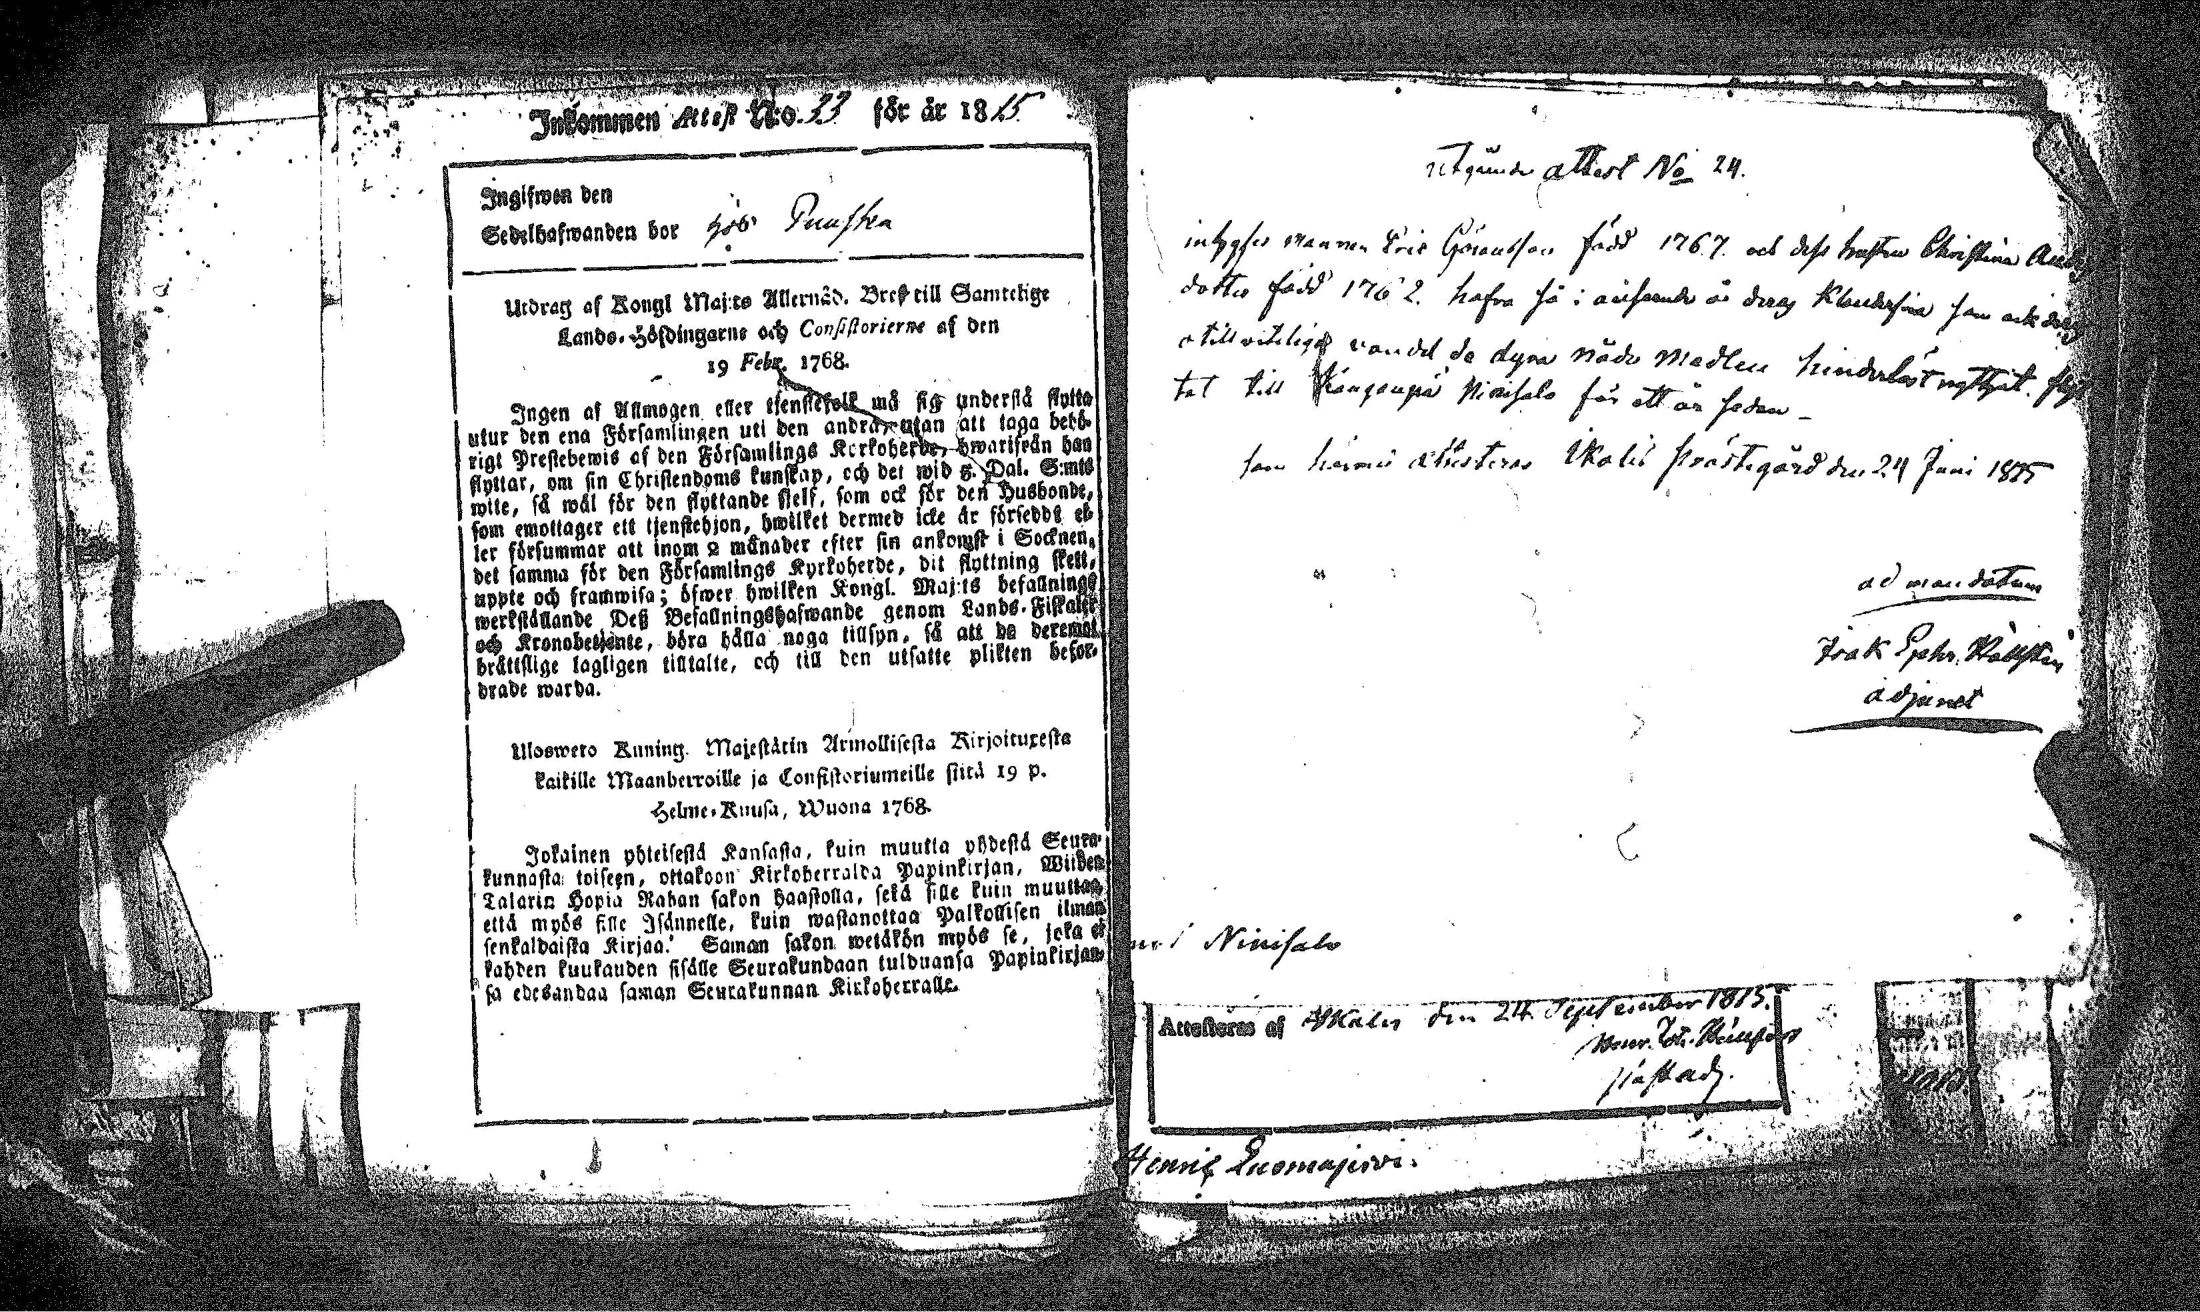 Inkommen Attest N:o 33 för år 1815
Ingifwen den
Sedelhafwanden bor hos Puuska
Utdrag af Kongl Maj:ts Allernåd. Bref till Samtelige
Lands-Höfdingarne och Consistorierne af den
19 Febr. 1768.
Ingen af Allmogen eller tjenstefolk må sig understå flytta
utur den ena Församlingen uti den andra, utan att taga behö-
rigt Prestebewis af den Församlings Kyrkoherde, hwarifrån han
flyttar, om sin Christendoms kunskap, och det wid 5. Dal. S:mts
wite, så wäl för den flyttande sjelf, som ock för den Husbonde,
som emottager ett tjenstehjon, hwilket dermed icke är försedde el-
ler försummar att inom 2 månader efter sin ankomst i Socknen,
det samma för den Församlings Kyrkoherde, dit flyttning skett,
uppte och framwisa; öfwer hwilken Kongl. Maj:ts befallnings
werkställande Deß Befallningshafwande genom Lands-Fiskaler
och Kronobetjente, böra hålla noga tillsyn, så att de deremot
bråttslige lagligen tilltalte, och till den utsatte plikten befor-
drade warda.
Ulosweto Kuning. Majestätin Armollisesta Kirjoituxesta
kaikille Maanherroille ja Consistoriumeille siitä 19 p.
Helme-Kuusa, Wuona 1768.
Jokainen yhteisestä Kansasta, kuin muutta yhdestä Seura-
kunnasta toiseen, ottakoon Kirkoherralda Papinkirjan, Wiiden
Talarin Hopia Rahan sakon haastolla, sekä sille kuin muuttaa,
että myös sille Isännelle, kuin wastanottaa Palkollisen ilman
senkaldaista Kirjaa. Saman sakon wetäkön myös se, joka ei
kahden kuukauden sisälle Seurakundaan tulduansa Papinkirjan-
sa edesandaa saman Seurakunnan Kirkoherralle.
utgående attest No 24.
intygses mannen Eric Göransson född 1767. och dess hustru Christina
dotter född 1762. hafva så i anseende är deras Klanderfria som ock
otillviteliga vandel de dyra nåde Medlen hinderlöst nyttjat.
tat till Kangaspä Niinisalo för ett år sedan _
som härmed attesteras Ikalis prästegård den 24 Juni 1815
ad mandatum
Isak Ephr. Wallstén
adjunct
Niinisalo
Attesteras af Ikalis den 24 September 1815.
Henric Luomajervi.